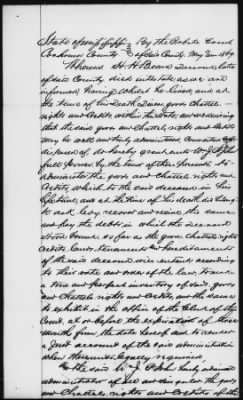 State of Mississippi } By the Probate Court
Coahoma County } of said County May Term 1869
Whereas H. H. Bears Deceased, late
of said County died intestate as we are
informed, having whilst he lived and at
the time of his Death Divers goods Chattels
rights and Credits within the State, and we desiring
that the said goods and Chattels, rights and Credits
may be well and truly administered
disposed of do hereby grant unto
full power by the tenor of these Presents to
administer the goods and Chattels, rights and
Credits, which to the said deceased in his
lifetime, and at the time of his death did belong
to ask levy recover and receive the same
and pay the debts in which the deceased
stood bound so far as the goods Chattels rights
Credits lands tenements and hereditaments
of the said deceased will extend according
to their rate and order of the law, to make
a true and perfect inventory of said goods
and Chattels rights and Credits and the same
to exhibit in the office of the Clerk of this
Court, at or before the expiration of three
months from the date hereof and to render
a just account of the said administration
when thereunto legally required.
the said W. J. hereby
administrator of all and singular the goods
and Chattels, rights and Credits of the